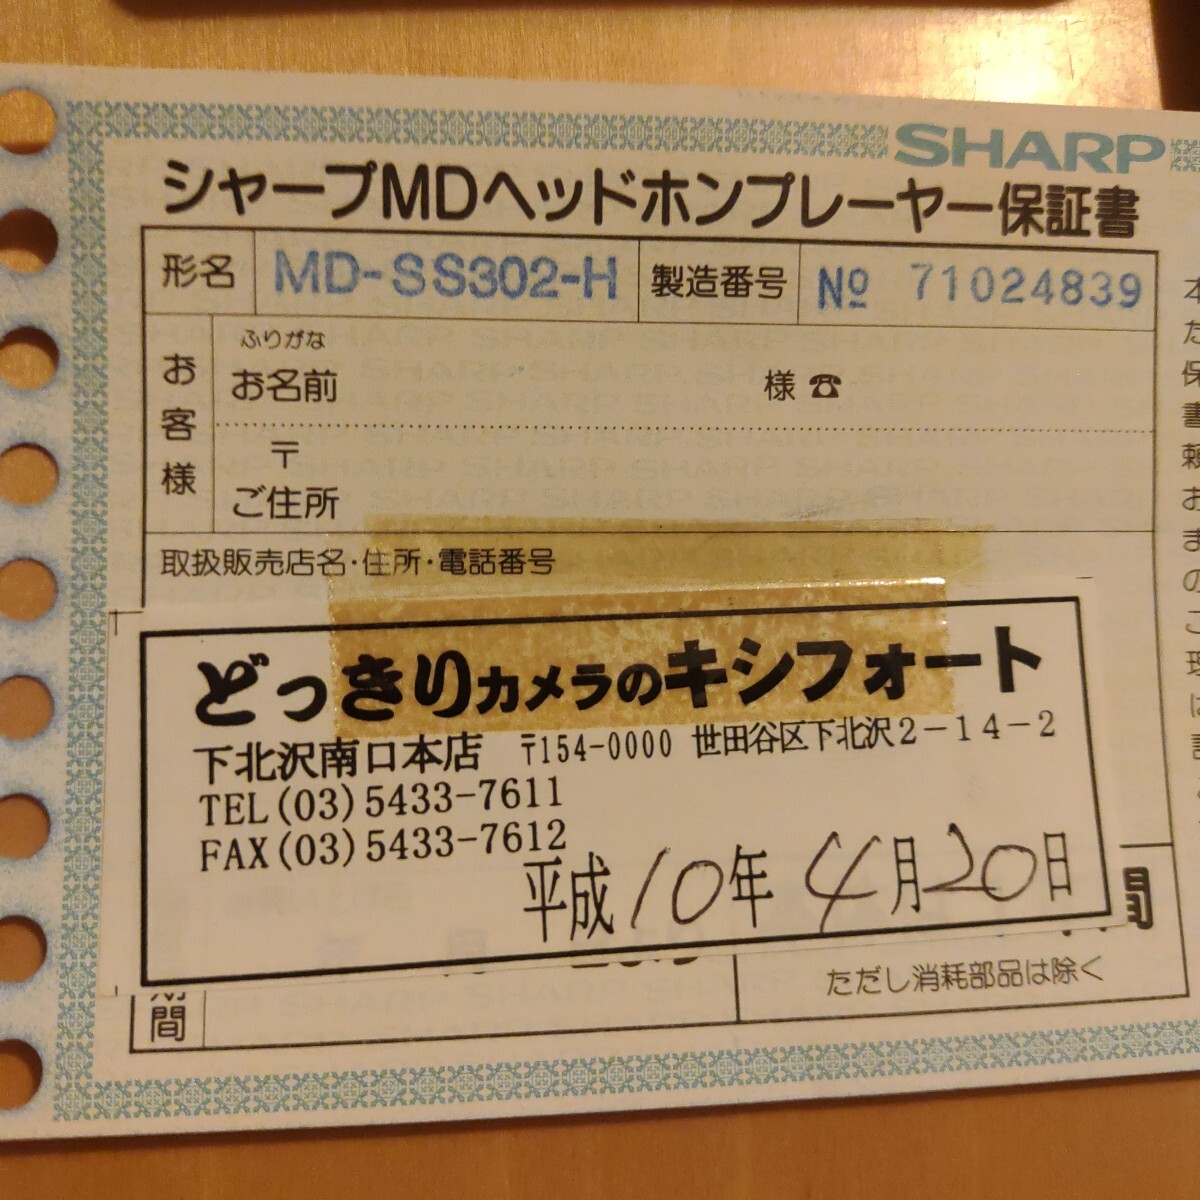 SHARP
シャープMDヘッドホンプレーヤー保証書
形名 MD-SS302-H 製造番号 № 71024839
お客様
ふりがな
お名前 様 ☎
〒
ご住所
取扱販売店名・住所・電話番号
どっきりカメラのキシフォート
下北沢南口本店 〒154-0000 世田谷区下北沢2-14-2
TEL(03)5433-7611
FAX(03)5433-7612
平成10年4月20日
間
期間
ただし消耗部品は除く
本
た
保
書
頼
お
ま
の
ご
理
は